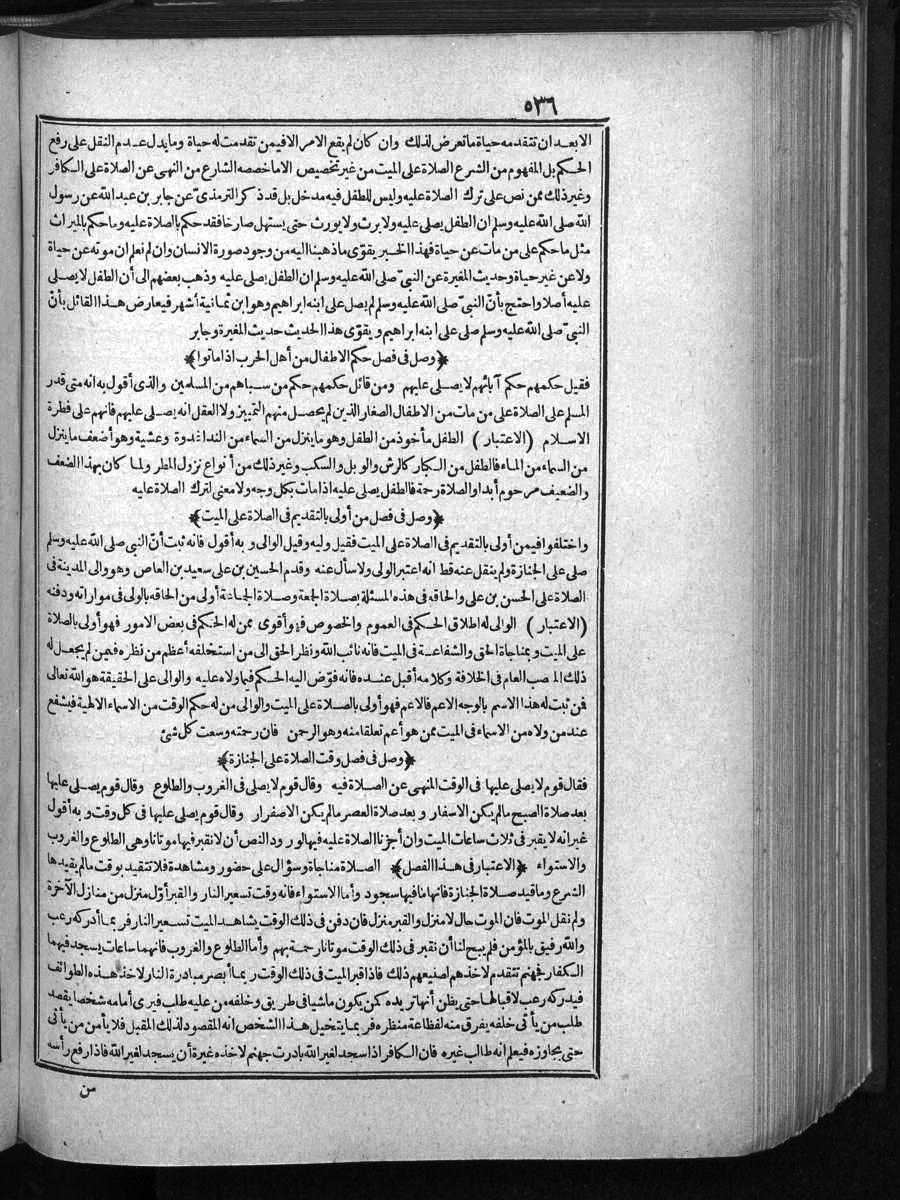 ٥٣٦
الا بعد ان تتقدمه حياة ما تعرض لذلك وان كان لم يقع الامر الا فيمن تقدمت له حياة وما يدل عدم النقل على رفع
الحكم بل المفهوم من الشرع الصلاة على الميت من غير تخصيص الا ما خصصه الشارع من النهى عن الصلاة على الكافر
وغير ذلك ممن نص على ترك الصلاة عليه وليس للطفل فيه مدخل بل قد ذكر الترمذىّ عن جابر بن عبد الله عن رسول
الله صلى الله عليه وسلم ان الطفل يصلى عليه ولا يرث ولا يورث حتى يستهل صارخا فقد حكم بالصلاة عليه وما حكم بالميراث
مثل ما حكم على من مات عن حياة فهذا الخبر يقوّى ما ذهبنا اليه من وجود صورة الانسان وان لم نعلم ان موته عن حياة
ولا عن غير حياة وحديث المغيرة عن النبىّ صلى الله عليه وسلم ان الطفل يصلى عليه وذهب بعضهم الى أن الطفل لا يصلى
عليه أصلا واحتج بأنّ النبىّ صلى الله عليه وسلم لم يصل على ابنه ابراهيم وهو ابن ثمانية أشهر فيعارض هذا القائل بأنّ
النبىّ صلى الله عليه وسلم صلى على ابنه ابراهيم ويقوّى هذا الحديث حديث المغيرة وجابر
﴿وصل فى فصل حكم الاطفال من أهل الحرب اذا ماتوا﴾
فقيل حكمهم حكم آبائهم لا يصلى عليهم ومن قائل حكمهم حكم من سباهم من المسلمين والذى أقول به انه متى قدر
المسلم على الصلاة على من مات من الاطفال الصغار الذين لم يحصل منهم التمييز ولا العقل انه يصلى عليهم فانهم على فطرة
الاسلام (الاعتبار) الطفل مأخوذ من الطفل وهو ما ينزل من السماء من الندا غدوة وعشية وهو أضعف ما ينزل
من السماء من الماء فالطفل من الكبار كالرش والوبل والسكب وغير ذلك من أنواع نزول المطر ولما كان بهذا الضعف
والضعيف مرحوم أبدا والصلاة رحمة فالطفل يصلى عليه اذا مات بكل وجه ولا معنى لترك الصلاة عليه
﴿وصل فى فصل من أولى بالتقديم فى الصلاة على الميت﴾
واختلفوا فيمن أولى بالتقديم فى الصلاة على الميت فقيل وليه وقيل الوالى وبه أقول فانه ثبت أنّ النبى صلى الله عليه وسلم
صلى على الجنازة ولم ينقل عنه قط انه اعتبر الولى ولا سأل عنه وقدم الحسين بن على سعيد بن العاص وهو والى المدينة فى
الصلاة على الحسن بن على والحاقه فى هذه المسئلة بصلاة الجمعة وصلاة الجماعة أولى من الحاقه بالولى فى مواراته ودفنه
(الاعتبار) الوالى له اطلاق الحكم فى العموم والخصوص فهو أقوى ممن له الحكم فى بعض الامور فهو أولى بالصلاة
على الميت وبمناجاة الحق والشفاعة فى الميت فانه نائب الله ونظر الحق الى من استخلفه أعظم من نظره فيمن لم يجعل له
ذلك المنصب العام فى الخلافة وكلامه أقبل عنده فانه فوّض اليه الحكم فيما ولاه عليه والوالى على الحقيقة هو الله تعالى
فمن ثبت له هذا الاسم بالوجه الاعم فالاعم فهو أولى بالصلاة على الميت والوالى من له حكم الوقت من الاسماء الالهية فيشفع
عند من ولاه من الاسماء فى الميت ممن هو أعم تعلقا منه وهو الرحمن فان رحمته وسعت كل شئ
﴿وصل فى فصل وقت الصلاة على الجنازة﴾
فقال قوم لا يصلى عليها فى الوقت المنهى عن الصلاة فيه وقال قوم لا يصلى فى الغروب والطلوع وقال قوم يصلى عليها
بعد صلاة الصبح ما لم يكن الاسفار وبعد صلاة العصر ما لم يكن الاصفرار وقال قوم يصلى عليها فى كل وقت وبه أقول
غير انه لا يقبر فى ثلاث ساعات الميت وان أجزنا الصلاة عليه فيها لورود النص أن لا نقبر فيها موتانا وهى الطلوع والغروب
والاستواء ﴿الاعتبار فى هذا الفصل﴾ الصلاة مناجاة وسؤال على حضور ومشاهدة فلا تتقيد بوقت ما لم يقيدها
الشرع وما قيد صلاة الجنازة فانها ما فيها سجود وأما الاستواء فانه وقت تسعير النار والقبر أوّل منزل من منازل الآخرة
ولم نقل الموت فان الموت حال لا منزل والقبر منزل فان دفن فى ذلك الوقت يشاهد الميت تسعير النار فربما أدركه رعب
والله رفيق بالمؤمن فلم يبح لنا أن نقبر فى ذلك الوقت موتانا رحمة بهم وأما الطلوع والغروب فانهما ساعات يسجد فيهما
الكفار فجهنم تتقدم لاخذهم لصنيعهم ذلك فاذا قبر الميت فى ذلك الوقت ربما أبصر مبادرة النار لاخذ هذه الطوائف
فيدركه رعب لاقبالها حتى يظن أنها تريده كمن يكون ماشيا فى طريق وخلفه من عليه طلب فيرى أمامه شخصا يقصد
طلب من يأتى خلفه يفرق منه لفظاعة منظره فربما يتخيل هذا الشخص انه المقصود لذلك المقبل فلا يأمن من يأتى
حتى يجاوزه فيعلم انه طالب غيره فان الكافر اذا سجد لغير الله بادرت جهنم لاخذه غيرة أن يسجد لغير الله فاذا رفع رأسه
من